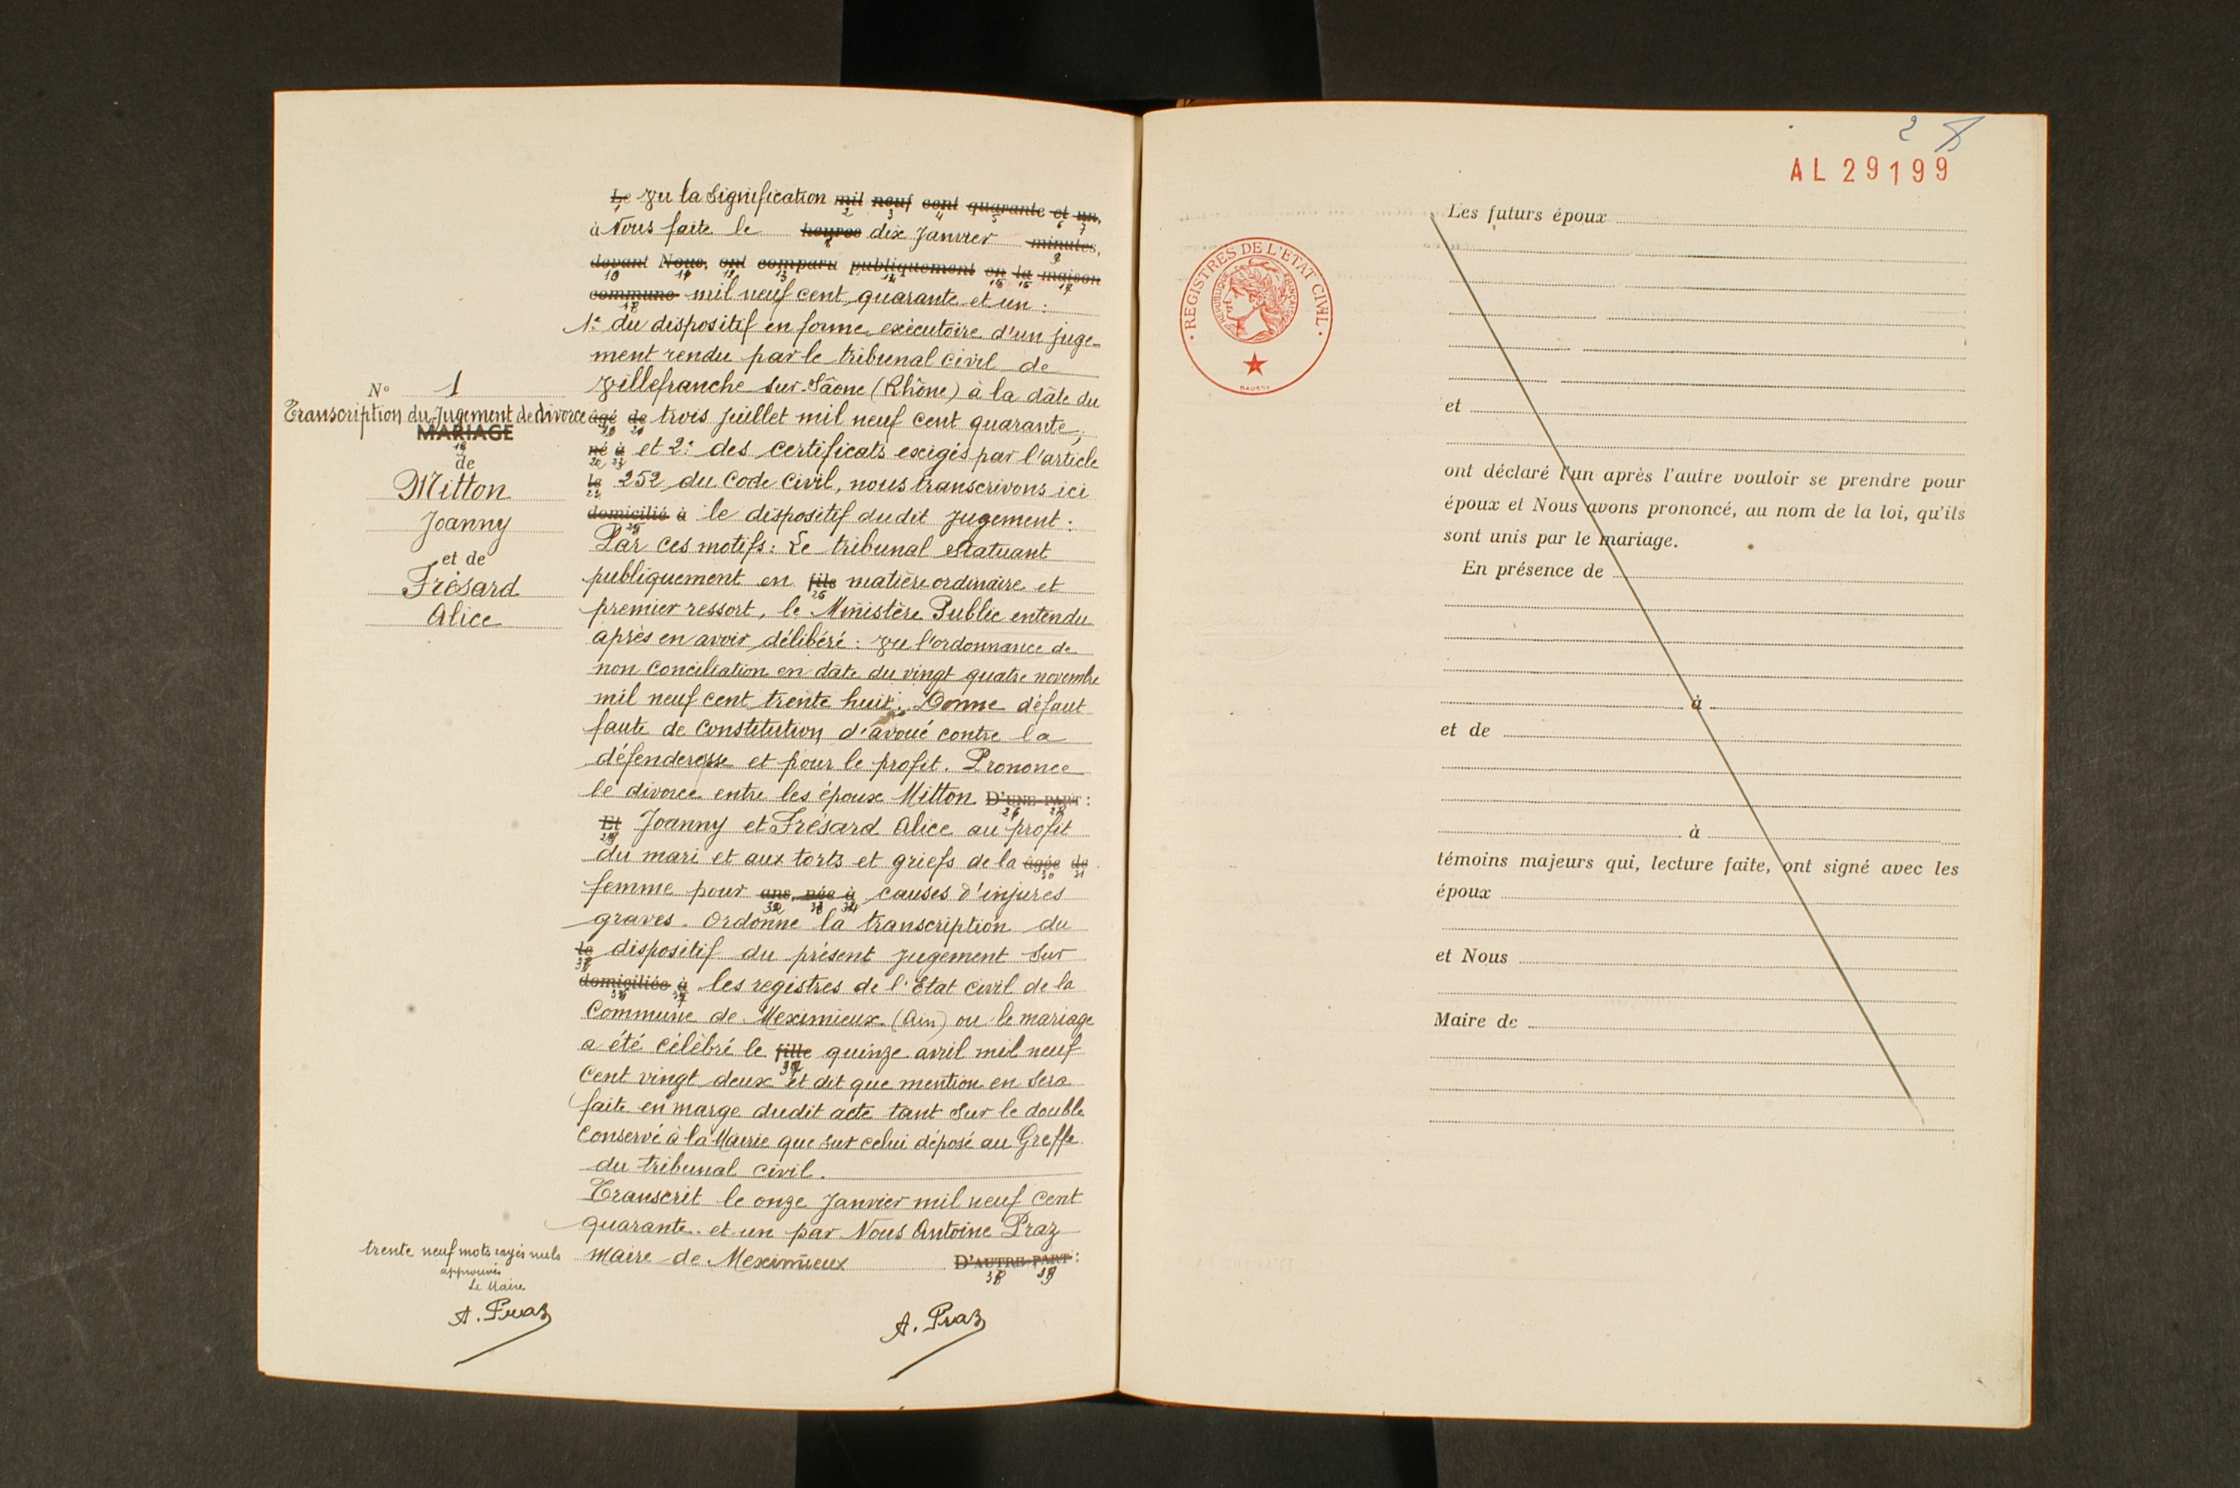 N° 1
Transcription du Jugement de divorce
MARIAGE
18
de
Mitton
Joanny
et de
Frésard
Alice
Le Vu la signification mil neuf cent quarante et un,
à Nous faite le heures dix Janvier minutes,
devant Nous, ont comparu publiquement en la maison
commune mil neuf cent quarante et un :
1° du dispositif en forme exécutoire d'un juge-
ment rendu par le tribunal civil de
Villefranche sur Sâone (Rhône) à la date du
âgé de trois Juillet mil neuf cent quarante,
né à et 2° des certificats exigés par l'article
le 252 du Code Civil, nous transcrivons ici
domicilié à le dispositif dudit Jugement :
Par ces motifs : Le tribunal statuant
publiquement en fils matière ordinaire et
premier ressort, le Ministère Public entendu
après en avoir délibéré : Vu l'ordonnance de
non conciliation en date du vingt quatre novembre
mil neuf cent trente huit : Donne défaut
faute de constitution d'avoué contre la
défenderesse et pour le profit. Prononce
le divorce entre les époux Mitton D'UNE PART :
Et Joanny et Frésard Alice au profit
du mari et aux torts et griefs de la âgée de
femme pour ans, née à causes d'injures
graves. Ordonne la transcription du
le dispositif du présent jugement sur
domiciliée à les registres de l'Etat civil de la
Commune de Meximieux (Ain) ou le mariage
a été célébré le fille quinze avril mil neuf
cent vingt deux et dit que mention en sera
faite en marge dudit acte tant sur le double
conservé à la Mairie que sur celui déposé au Greffe
du tribunal civil.
Transcrit le onze Janvier mil neuf cent
quarante et un par Nous Antoine Praz
maire de Meximieux D'AUTRE PART :
trente neuf mots rayés nuls
approuvés
Le Maire
A. Praz
A. Praz
2
AL 29199
REGISTRES DE L'ETAT CIVIL
Les futurs époux
et
ont déclaré l'un après l'autre vouloir se prendre pour
époux et Nous avons prononcé, au nom de la loi, qu'ils
sont unis par le mariage.
En présence de
à
et de
à
témoins majeurs qui, lecture faite, ont signé avec les
époux
et Nous
Maire de